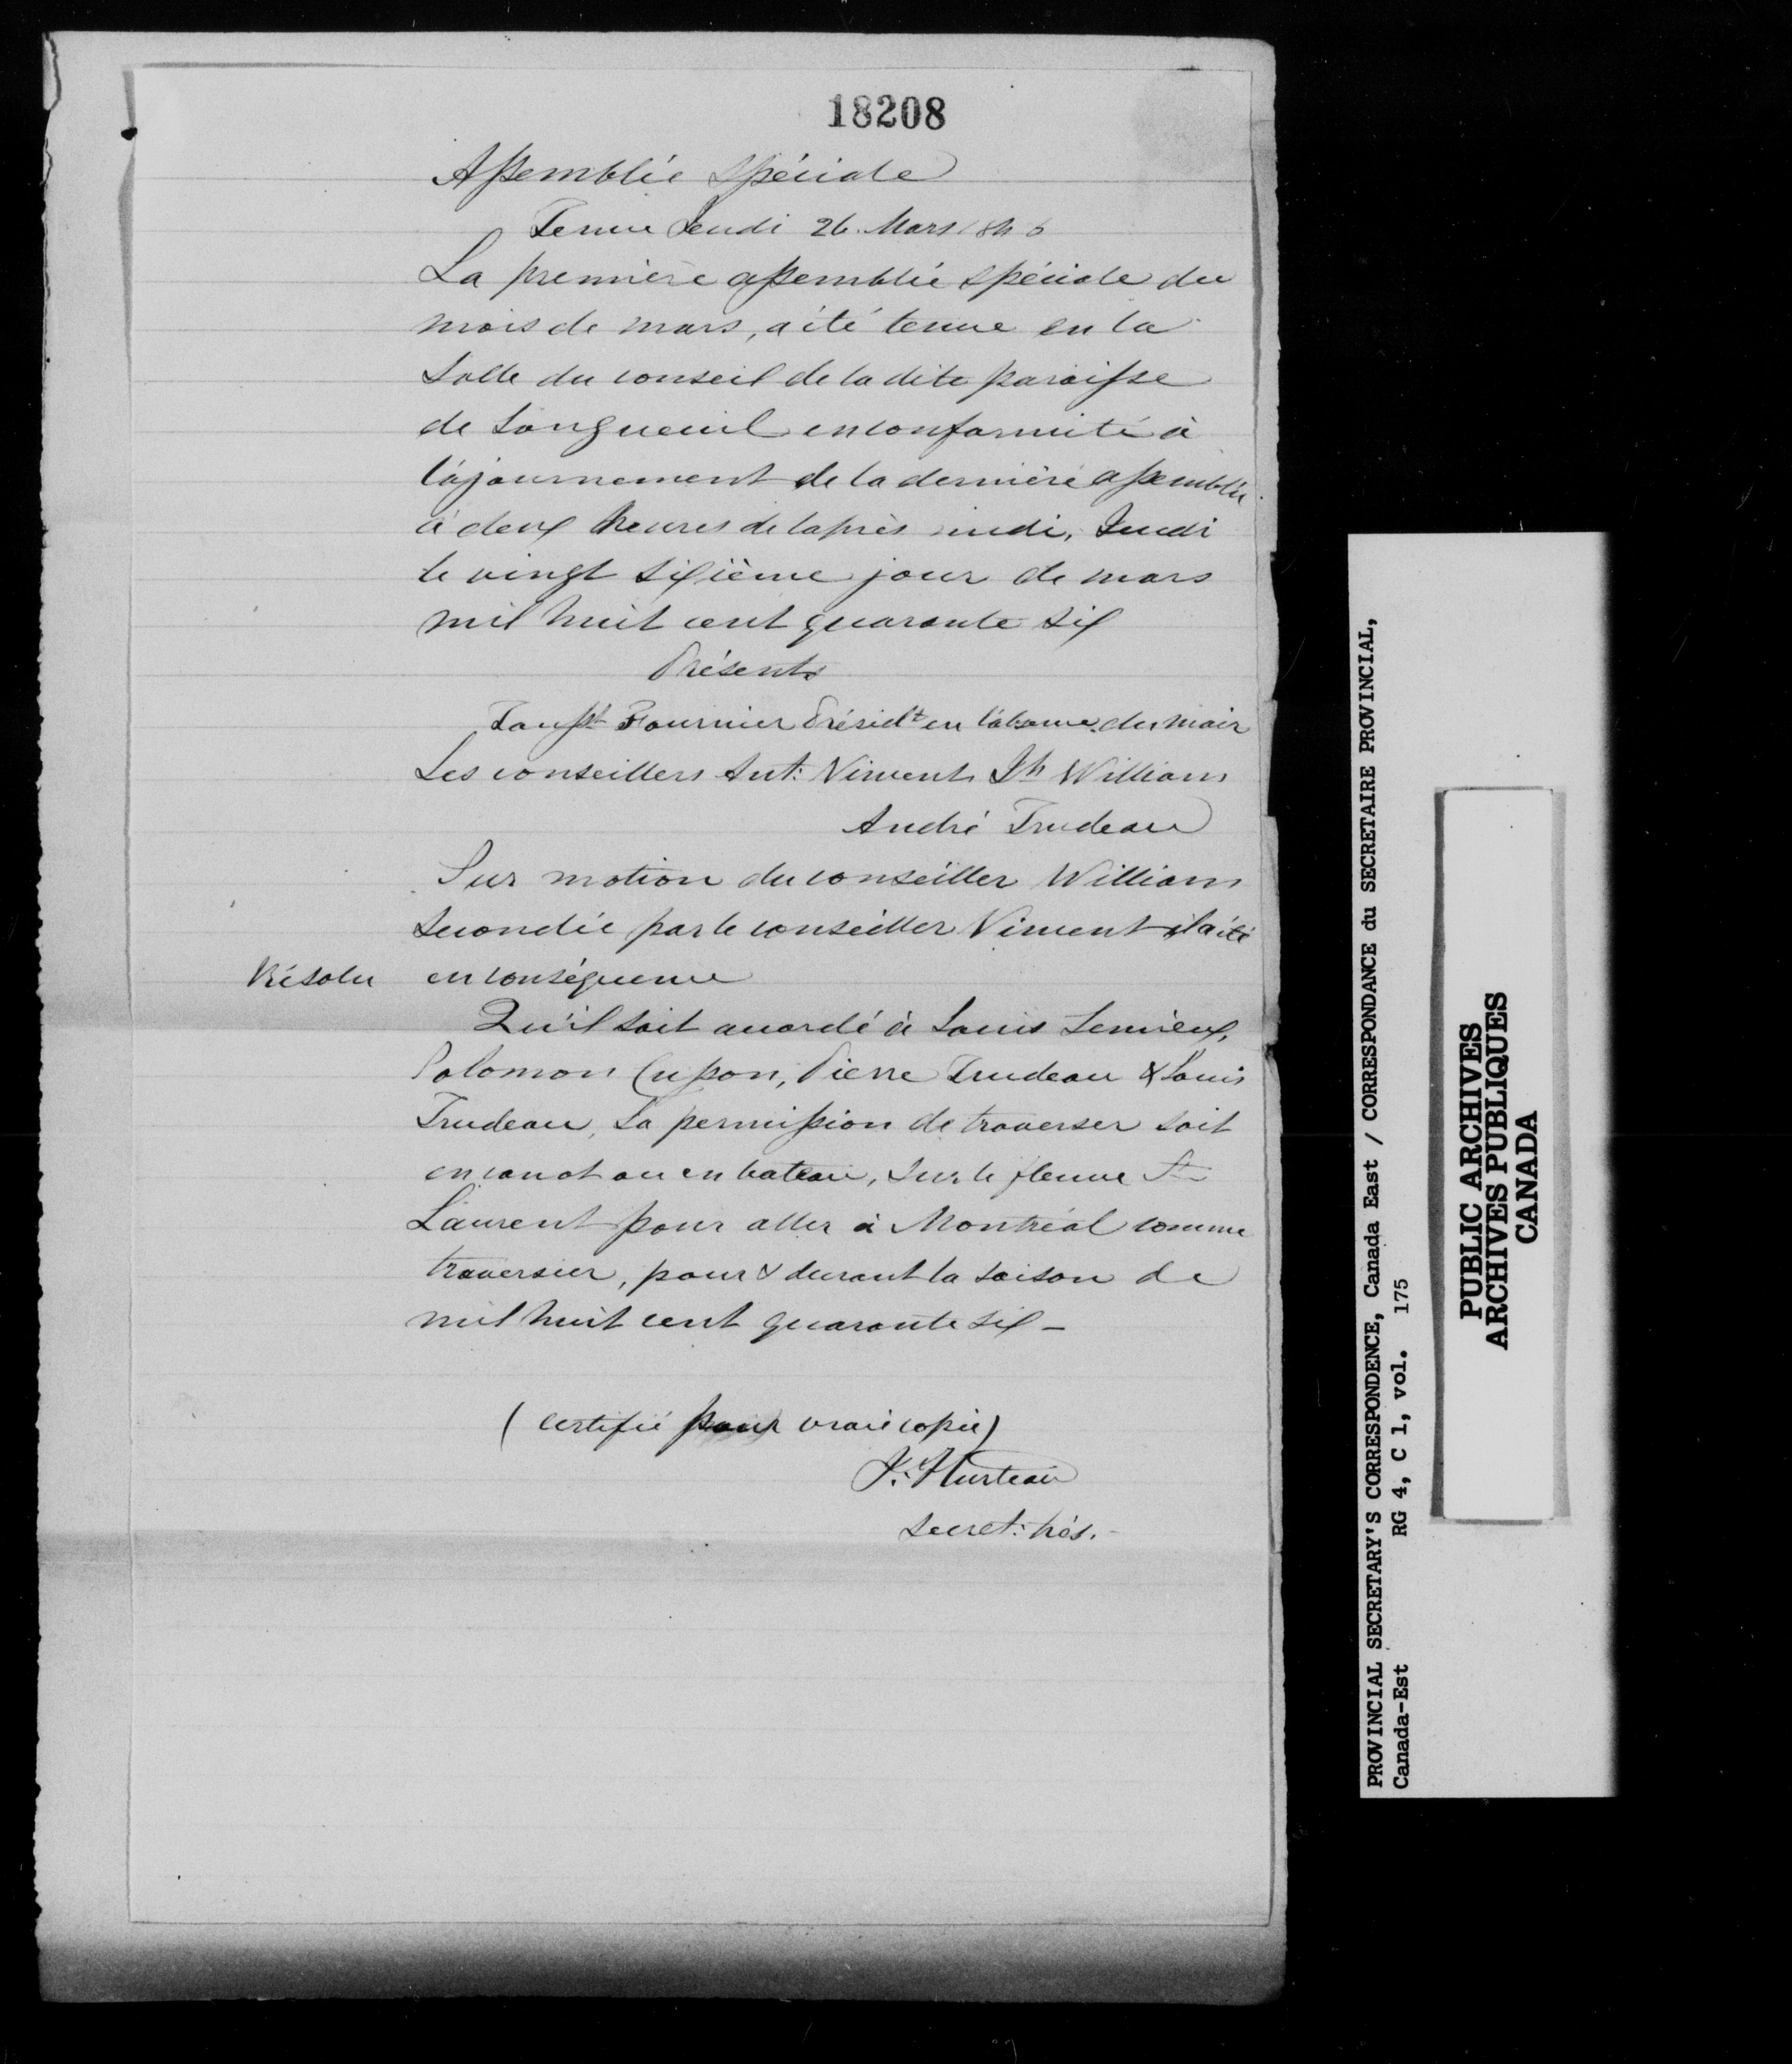 18208
Assemblée Spéciale
Tenue Jeudi 26. Mars 1846
La première assemblée spéciale du
mois de mars, a été tenue en la
Salle du conseil de la dite paroisse
de Longueuil en conformité à
l'ajournement de la dernière assemblée
à deux heures de laprès midi, Jeudi
le vingt sixième jour de mars
mil huit cent quarante six
Présents
Fournier Présidt en l'absence du Mair
Les conseillers Ant: Vincent Jh William
André Trudeau
Sur motion du conseiller William
Secondée par le conseiller Vincent il a été
Résolu en conséquence
Qu'il soit accordé à Louis Lemieux,
Solomon Cupson, Pierre Trudeau & Louis
Trudeau, La permission de traverser soit
en canot ou en bateau, Sur le fleuve St
Laurent pour aller à Montréal comme
traversier, pour & durant la saison de
mil huit cent quarante six –
(certifié pour vraie copie)
Hurteau
Secret: trés.
PROVINCIAL SECRETARY'S CORRESPONDENCE, Canada East / CORRESPONDANCE du SECRETAIRE PROVINCIAL,
Canada-Est RG 4, C 1, vol. 175
PUBLIC ARCHIVES
ARCHIVES PUBLIQUES
CANADA